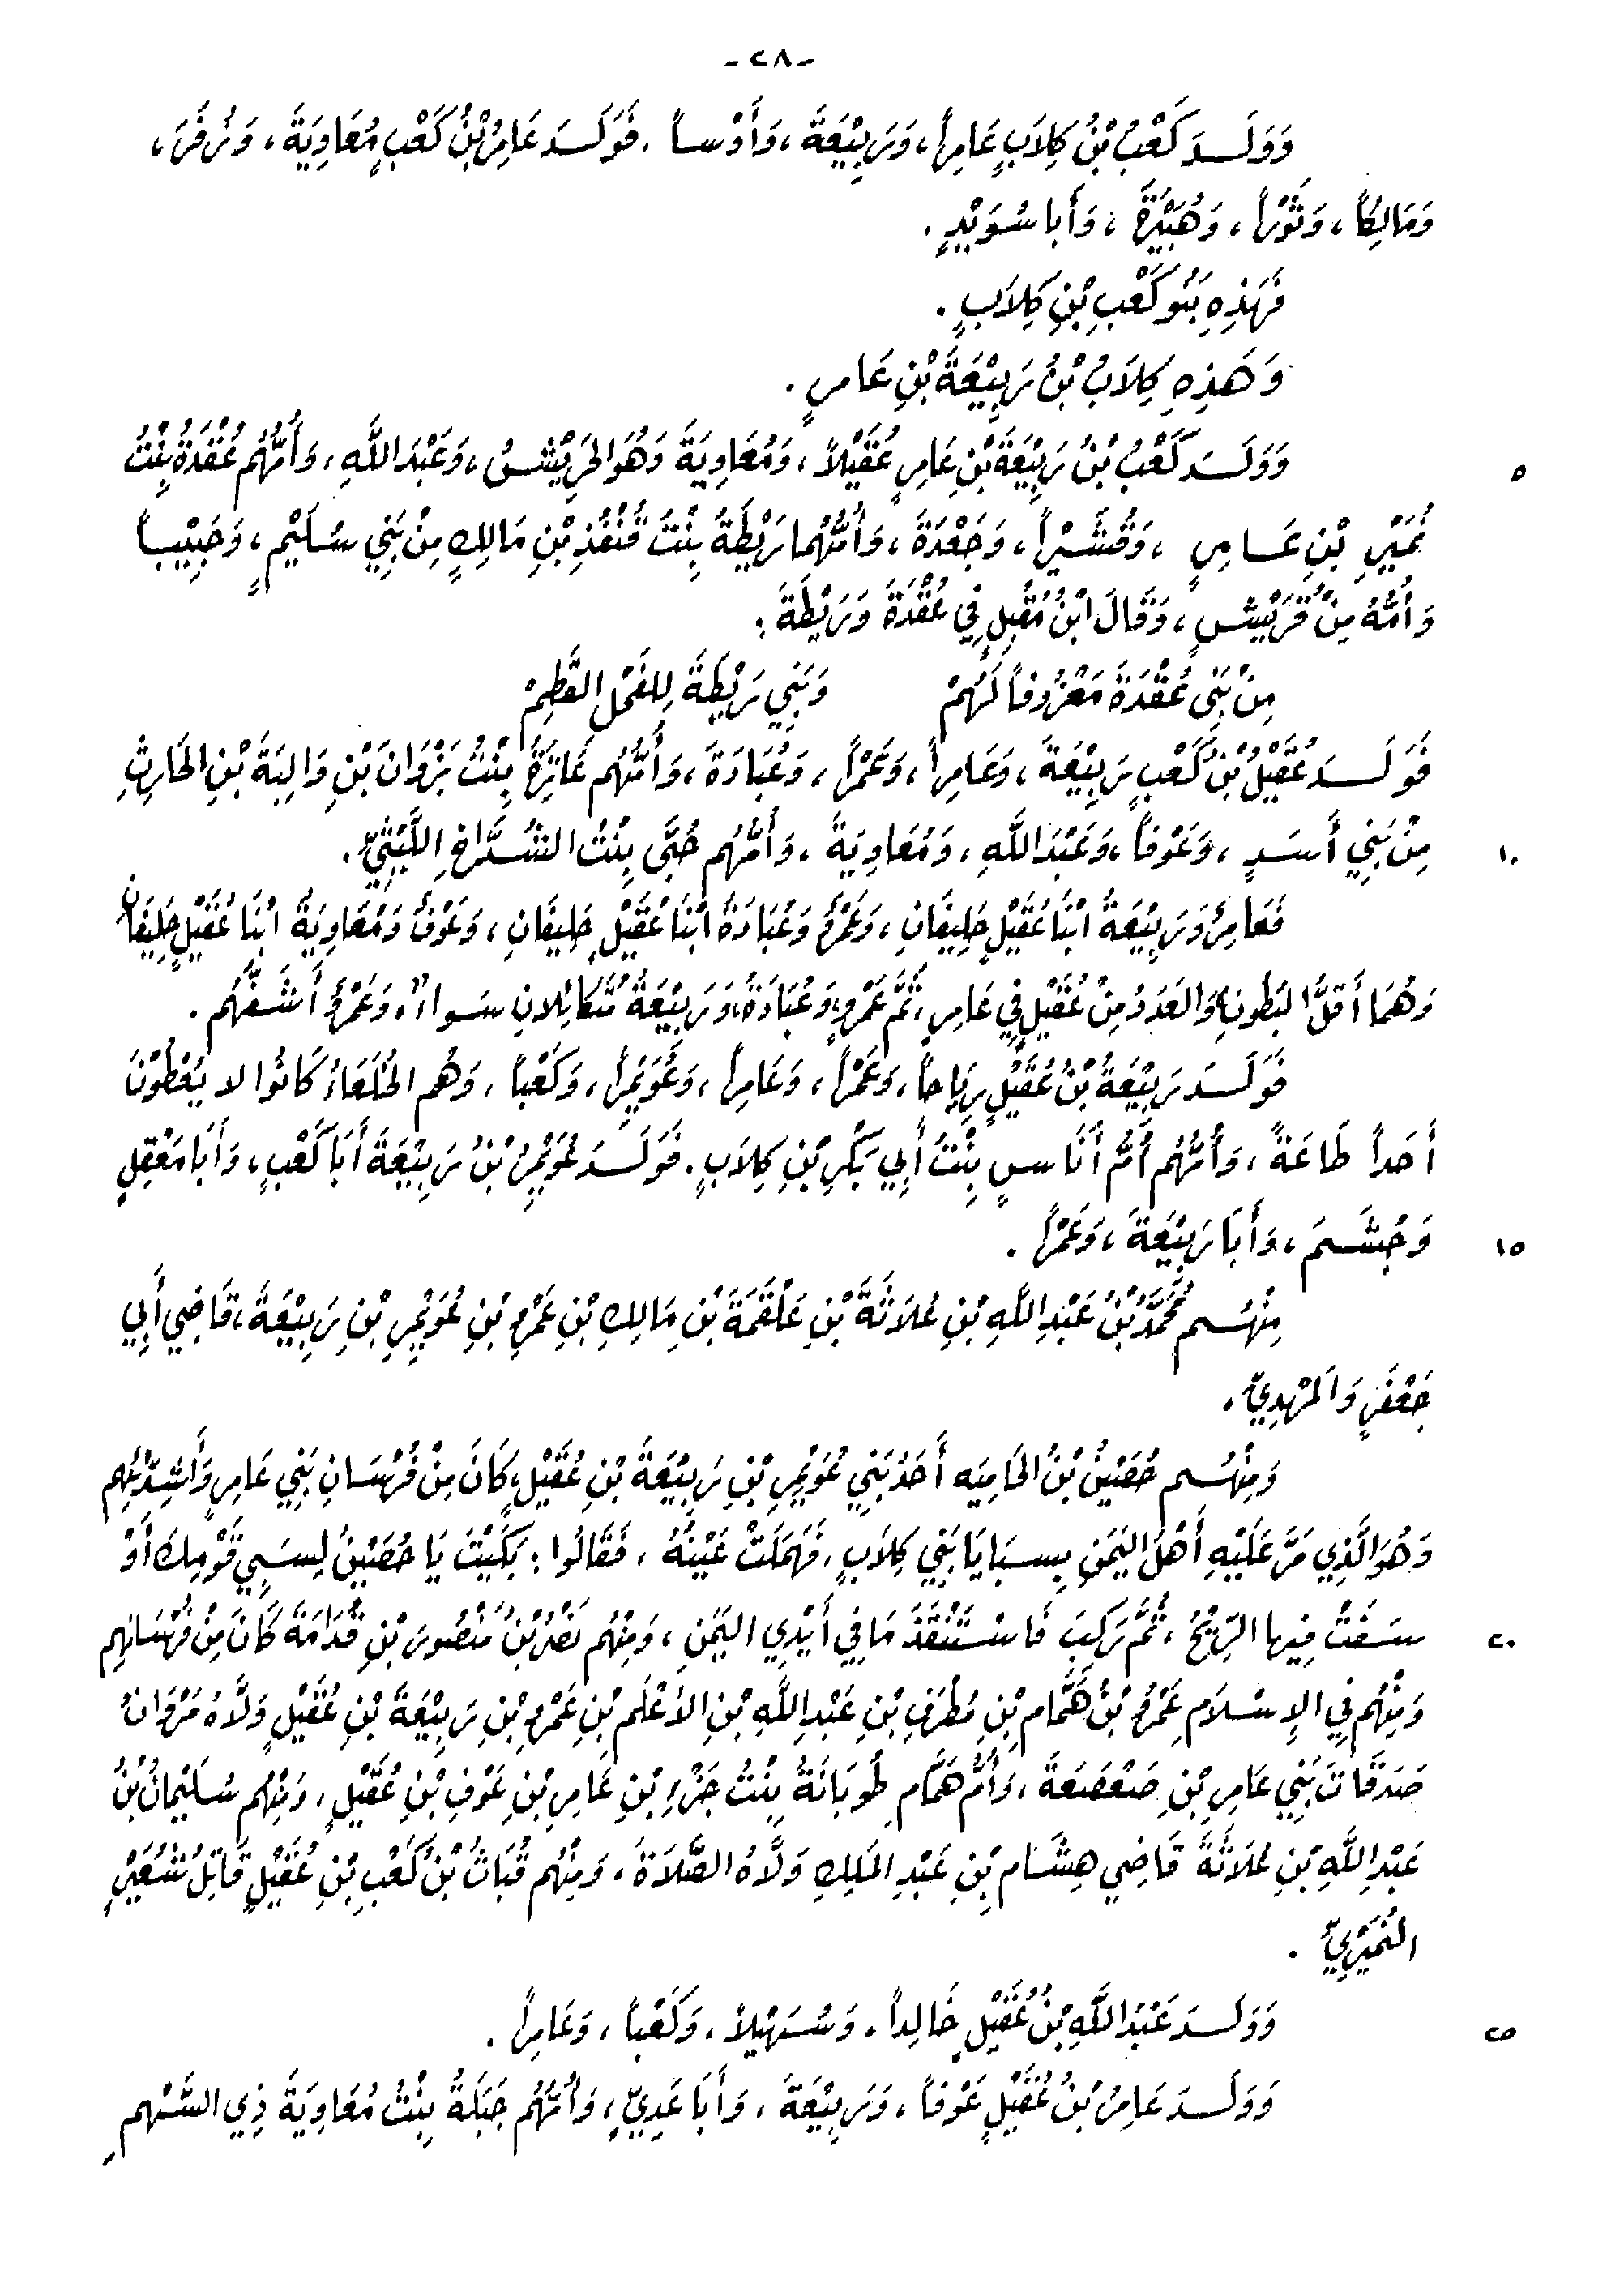 -٢٨-
وَوَلَدَ كَعْبُ بْنُ كِلاَبٍ عَامِراً، وَرَبِيْعَةَ، وَأَوْساً. فَوَلَدَ عَامِرُ بْنُ كَعْبٍ مُعَاوِيَةَ، وَزُفَرَ،
وَمَالِكاً، وَثَوْراً، وَهُبَيْرَةَ، وَأَبا سُوَيْدٍ.
فَهَذِهِ بَنُو كَعْبِ بْنِ كِلاَبٍ.
وَهَذِهِ كِلاَبُ بْنُ رَبِيْعَةَ بْنِ عَامرٍ.
٥ وَوَلَدَ كَعْبُ بْنُ رَبِيْعَةَ بْنِ عَامِرٍ عُقَيْلاً، وَمُعَاوِيَةَ وَهُوَ الحَرِيْشُ، وَعَبْدَ اللَّهِ، وَأُمُّهُم عُقْدَةُ بِنْتُ
نُمَيْرِ بْنِ عَامِرٍ، وَقُشَيْراً، وَجَعْدَةَ، وَأُمُّهُما رَيْطَةُ بِنْتُ قُنْفُذِ بْنِ مَالِكٍ مِنْ بَنِي سُلَيْمٍ، وَحَبِيْباً
وَأُمُّهُ مِنْ قُرَيْشٍ، وَقَالَ ابْنُ مُقْبِلٍ فِي عُقْدَةَ وَرَيْطَةَ:
مِنْ بَنِي عُقْدَةَ مَعْرُوفاً لَهُمْ وَبَنِي رَيْطَةَ لِلفَحْلِ القَطِمْ
فَوَلَدَ عُقَيْلُ بْنُ كَعْبٍ رَبِيْعَةَ، وَعَامِراً، وَعَمْراً، وَعُبَادَةَ، وَأُمُّهُم عَاتِرَةُ بِنْتُ نَزْوَانَ بْنِ وَالِبَةَ بْنِ الحَارِثِ
١٠ مِنْ بَنِي أَسَدٍ، وَعَوْفاً، وَعَبْدَ اللَّهِ، وَمُعَاوِيَةَ، وَأُمُّهُم حُبَّى بِنْتُ الشُّدَّاخِ اللَّيْثِيِّ.
فَعَامِرٌ وَرَبِيْعَةُ ابْنَا عُقَيْلٍ حَلِيفَانِ، وَعَمْرٌو وَعُبَادَةُ ابْنَا عُقَيْلٍ حَلِيفَانِ، وَعَوْفٌ وَمُعَاوِيَةُ ابْنَا عُقَيْلٍ حَلِيفَانِ
وَهُمَا أَقَلُّ البُطُونِ وَالعَدَدُ مِنْ عُقَيْلٍ فِي عَامِرٍ، ثُمَّ عَمْرٍو، وَعُبَادَةُ وَرَبِيْعَةُ مُتَكَائِلانِ سَواءٌ، وَعَمْرٌو أَشَفُّهُم.
فَوَلَدَ رَبِيْعَةُ بْنُ عُقَيْلٍ رِيَاحاً، وَعَمْراً، وَعَامِراً، وَعُوَيْمِراً، وَكَعْباً، وَهُم الخُلَعَاءُ كَانُوا لا يُعْطُوْنَ
أَحَداً طَاعَةً، وَأُمُّهُم أُمُّ أُنَاسٍ بِنْتُ أَبِي بَكْرِ بْنِ كِلاَبٍ. فَوَلَدَ عُوَيْمِرُ بْنُ رَبِيْعَةَ أَبَا كَعْبٍ، وَأَبَا مَعْقِلٍ
١٥ وَجُشَمَ، وَأَبَا رَبِيْعَةَ، وَعَمْراً.
مِنْهُم مُحَمَّدُ بْنُ عَبْدِ اللَّهِ بْنِ عُلاَثَةَ بْنِ عَلْقَمَةَ بْنِ مَالِكِ بْنِ عَمْرِو بْنِ عُوَيْمِرِ بْنِ رَبِيْعَةَ، قَاضِي أَبِي
جَعْفَرٍ وَالمَهْدِيِّ.
وَمِنْهُم حُصَيْنُ بْنُ الحَامِيَه أَحَدُ بَنِي عُوَيْمِرِ بْنِ رَبِيْعَةَ بْنِ عُقَيْلٍ، كَانَ مِنْ فُرْسَانِ بَنِي عَامِرٍ وَأَشِدَّائِهِم
وَهُوَ الَّذِي مَرَّ عَلَيْهِ أَهْلُ اليَمَنِ بِسبَايَا بَنِي كِلاَبٍ، فَهَمَلَتْ عَيْنُهُ، فَقَالُوا: بَكَيْتَ يَا حُصَيْنُ لِسَبِي قَوْمِكَ أَوْ
٢٠ سَفَتْ فِيها الرِّيْحُ، ثُمَّ رَكِبَ فَاسْتَنْقَذَ مَا فِي أَيْدِي اليَمَنِ، وَمِنْهُم نَصْرُ بْنُ مَنْصُورِ بْنِ قُدَامَةَ كَانَ مِنْ فُرْسَانِهِم
وَمِنْهُم فِي الإِسْلاَمِ عَمْرُو بْنُ هَمَّامِ بْنِ مُطَرِّفِ بْنِ عَبْدِ اللَّهِ بْنِ الأَعْلَمِ بْنِ عَمْرِو بْنِ رَبِيْعَةَ بْنِ عُقَيْلٍ وَلاَّهُ مَرْوَانُ
صَدَقَاتِ بَنِي عَامِرِ بْنِ صَعْصَعَةَ، وَأُمُّ هَمَّامٍ طُوبَانَةُ بِنْتُ جَزْءِ بْنِ عَامِرِ بْنِ عَوْفِ بْنِ عُقَيْلٍ، وَمِنْهُم سُلَيْمانُ بْنُ
عَبْدِ اللَّهِ بْنِ عُلاَثَةَ قَاضِي هِشَامِ بْنِ عَبْدِ المَلِكِ وَلاَّهُ الصَّلاَةَ، وَمِنْهُم قُبَاثُ بْنُ كَعْبِ بْنِ عُقَيْلٍ قَاتِلُ شُعَيْرٍ
النُّمَيْرِيِّ.
٢٥ وَوَلَدَ عَبْدُ اللَّهِ بْنُ عُقَيْلٍ خَالِداً، وَسُهَيْلاً، وَكَعْباً، وَعَامِراً.
وَوَلَدَ عَامِرُ بْنُ عُقَيْلٍ عَوْفاً، وَرَبِيْعَةَ، وَأَبَا عَدِيٍّ، وَأُمُّهُم حَبْلَةُ بِنْتُ مُعَاوِيَةَ ذِي السَّهْمِ